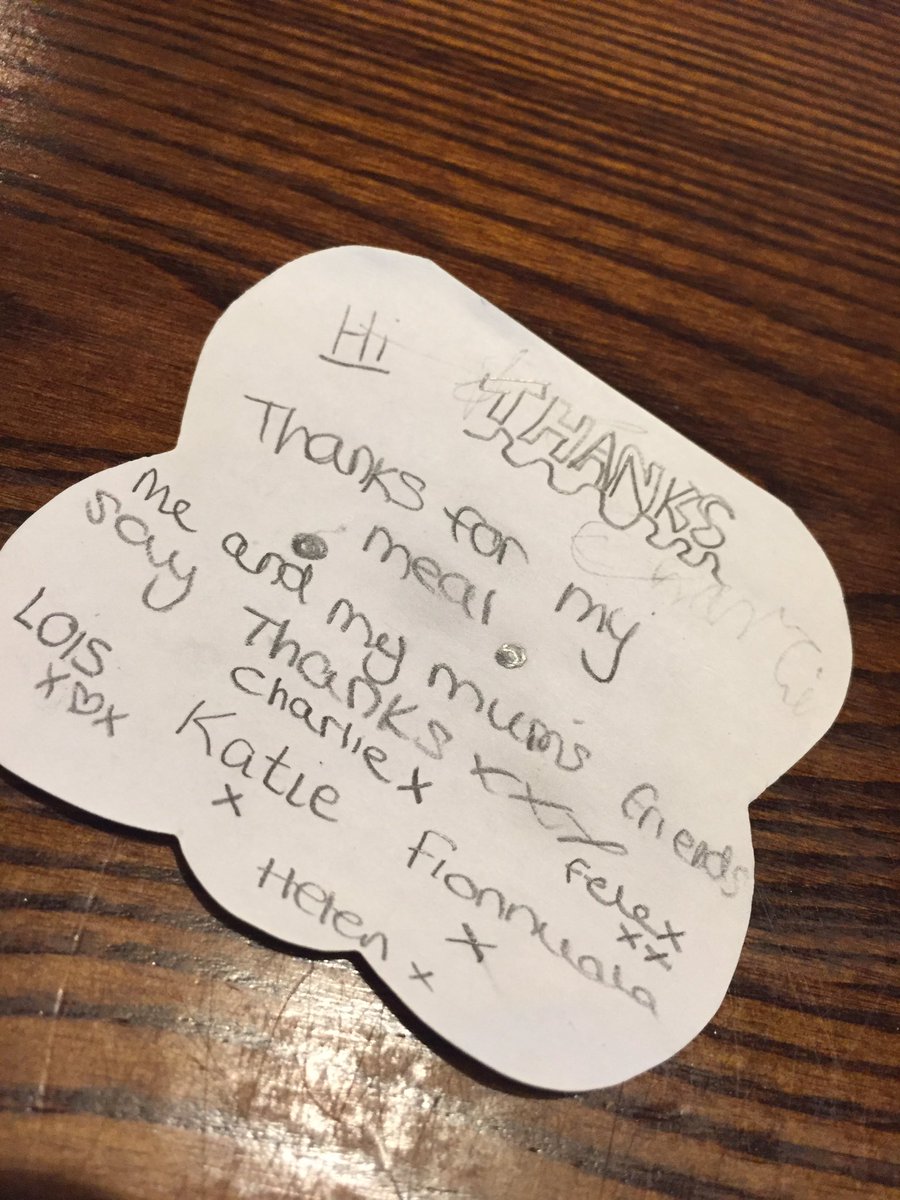 Hi
THANKS
Thanks for my
meal
me and my mum's friends
say Thanks xxx
Charlie x
LOIS
x♡x
Katie
x
Fionnuala
x
Helen x